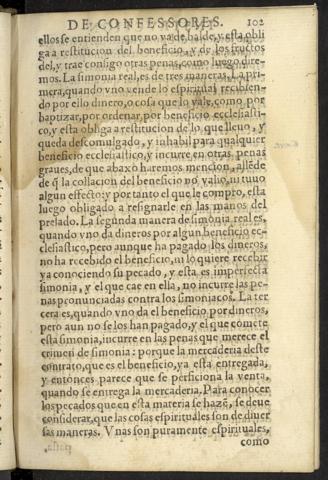 DE CONFESSORES. 102
ellos se entienden que no va de balde, y esta obli
ga a restitucion del beneficio, y de los fructos
del, y trae consigo otras penas como luego dire-
mos. La simonia real, es de tres maneras. La pri-
mera, quando vno vende lo espiritual recibien-
do por ello dinero, o cosa que lo vale, como por
baptizar, por ordenar, por beneficio ecclesiasti-
co, y esta obliga a restitucion de lo que lleuo, y
queda descomulgado, y inhabil para qualquier
beneficio ecclesiastico, y incurre en otras penas
graues, de que abaxo haremos mencion, allẽde
de q̃ la collacion del beneficio no valio, ni tuuo
algun effecto: y por tanto el que le compro, esta
luego obligado a resignarle en las manos del
prelado. La segunda manera de simonia real es,
quando vno da dineros por algun beneficio ec-
clesiastico, pero aunque ha pagado los dineros,
no ha recebido el beneficio, ni lo quiere recebir
ya conociendo su pecado, y esta es imperfecta
simonia, y el que cae en ella, no incurre las pe-
nas pronunciadas contra los simoniacos. La ter
cera es, quando vno da el beneficio por dineros,
pero aun no se los han pagado, y el que comete
esta simonia, incurre en las penas que merece el
crimen de simonia: porque la mercaderia deste
contrato, que es el beneficio, ya esta entregada,
y entonces parece que se perficiona la venta,
quando se entrega la mercaderia. Para conocer
los pecados que en esta materia se hazẽ, se deue
considerar, que las cosas espirituales son de diuer
sas maneras. Vnas son puramente espirituales,
como